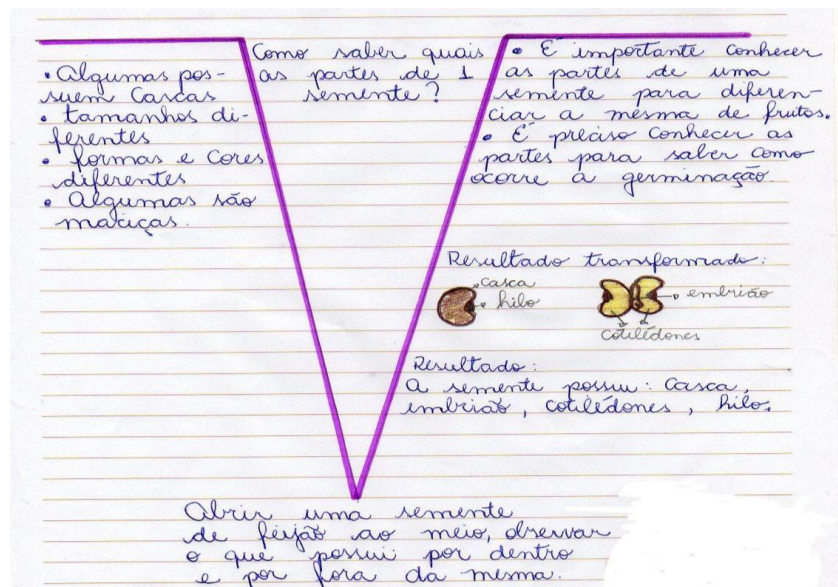 • Algumas pos-
suem Cascas
• tamanhos di-
ferentes
• formas e Cores
diferentes
• Algumas são
maciças.
Como saber quais
as partes de 1
semente?
• É importante conhecer
as partes de uma
semente para diferen-
ciar a mesma de frutos.
• É preciso conhecer as
partes para saber como
ocorre a germinação.
Resultado transformado:
casca
hilo
embrião
cotilédones
Resultado:
A semente possui: Casca,
embrião, cotilédones, hilo.
Abrir uma semente
de feijão ao meio, observar
o que possui por dentro
e por fora da mesma.